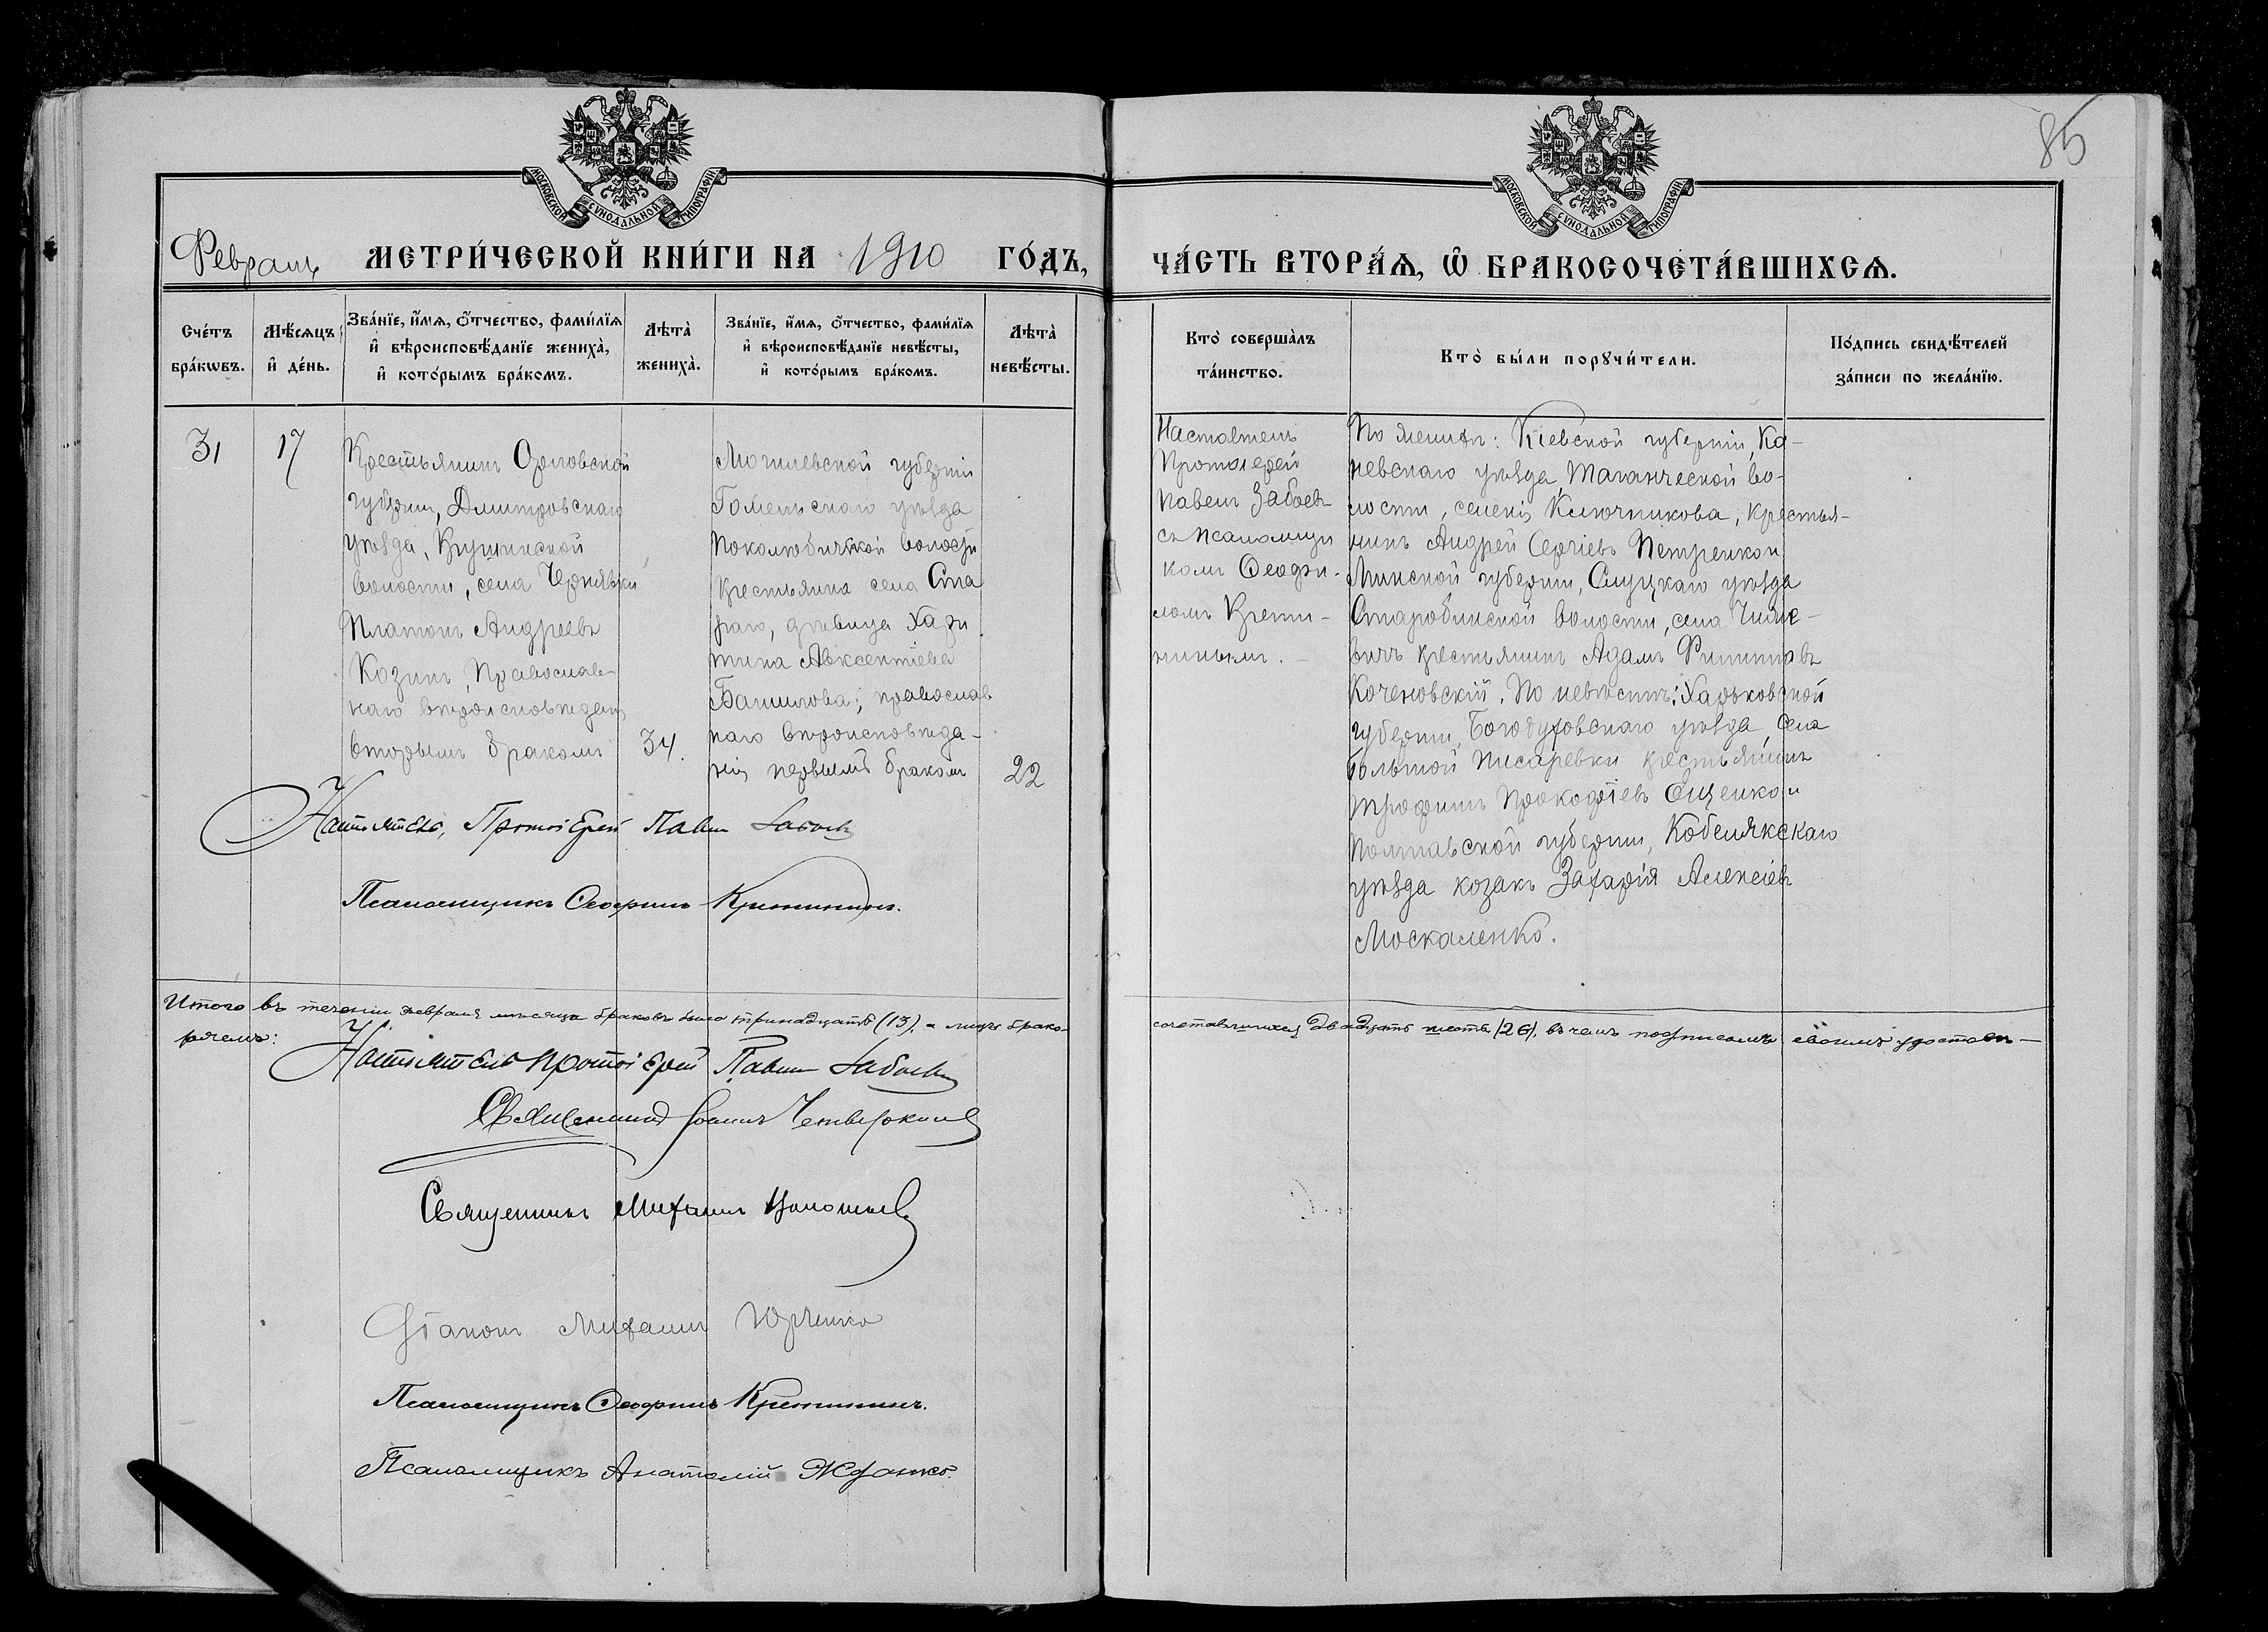 85
МОСКОВСКОЙ СѴНОДАЛЬНОЙ ТИПОГРАФІИ
МОСКОВСКОЙ СѴНОДАЛЬНОЙ ТИПОГРАФІИ
Февраль МЕТРИ́ЧЕСКОЙ КНИ́ГИ НА 1910 ГО́ДЪ,
ЧА́СТЬ ВТОРА́Ѧ, Ѡ БРАКОСОЧЕТА́ВШИХСѦ.
Сче́тъ бра́кѡвъ.
Мѣ́сяцъ и҆ де́нь.
Зва́нїе, и҆́мѧ, ѻ҆́тчество, фами́лїѧ
и҆ вѣроисповѣ́данїе жениха̀,
и҆ кото́рымъ бра́комъ.
Лѣта̀ жениха̀.
Зва́нїе, и҆́мѧ, ѻ҆́тчество, фами́лїѧ
и҆ вѣроисповѣ́данїе невѣ́сты,
и҆ кото́рымъ бра́комъ.
Лѣта̀ невѣ́сты.
Кто̀ соверша̀лъ та́инство.
Кто̀ бы́ли порꙋчи́тели.
По́дпись свидѣ́телей
за́писи по жела́нїю.
31
17
Крестьянинъ Орловской
губерніи, Дмитровскаго
уѣзда,
волости, села
Платонъ Андреевъ
Козинъ, Православ-
наго вѣроисповѣданія
вторымъ бракомъ
34.
Могилевской губерніи
Гомельскаго уѣзда
Поколюбичской волости
крестьянка села Ста
раго, дѣвица Хари
тина Авксентіева
православ
наго вѣроисповѣда-
нія первымъ бракомъ
22
Настоятель
Протоіерей
Павелъ Забоевъ
съ псаломщи
комъ Ѳеофи-
ломъ
По женихѣ: Кіевской губерніи, Ка-
невскаго уѣзда, Таганческой во-
лости, селенія Ключникова, крестья-
нинъ Андрей Сергіевъ Петренко и
Минской губерніи, Слуцкаго уѣзда
Старобинской волости, села Чиже-
вичъ крестьянинъ Адамъ Филипповъ
Коченовскій. По невѣстѣ: Харьковской
губерніи, Богодуховскаго уѣзда, села
Большой Писаревки крестьянинъ
Трофимъ Прокофіевъ Ещенко и
Полтавской губерніи, Кобелякскаго
уѣзда козакъ Захарія Алексіевъ
Москаленко.
Настоятель, Протоіерей Павелъ Забоевъ
Псаломщикъ Ѳеофилъ
Итого въ теченіи февраля мѣсяца браковъ было тринадцать (13), а лицъ брако-
сочетавшихся двадцать шесть (26), въ чемъ подписомъ своимъ удостовѣ-
ряемъ:
Настоятель протоіерей Павелъ Забоевъ
Священникъ Іоаннъ
Священникъ Михаилъ
Діаконъ Михаилъ Юрченко
Псаломщикъ Ѳеофилъ
Псаломщикъ Анатолій Жданко.